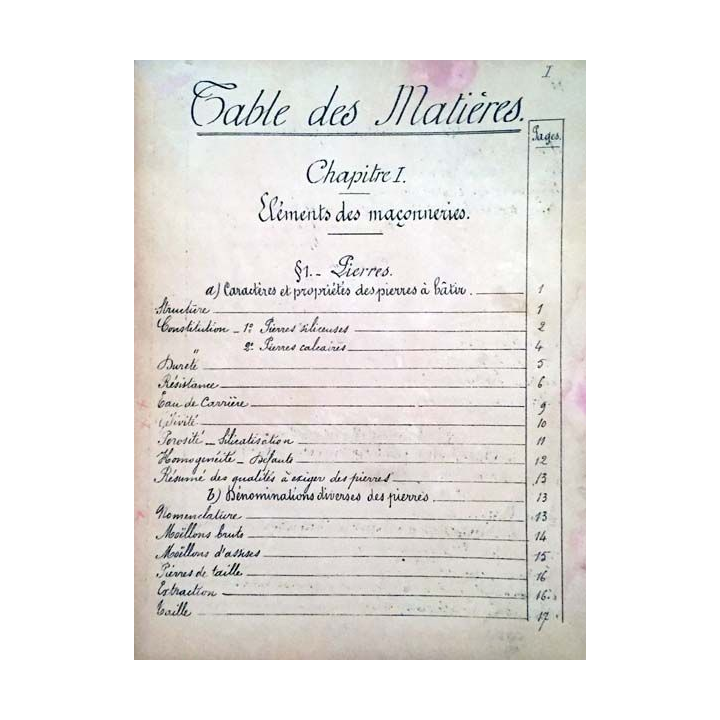 I
Table des Matières.
Pages.
Chapitre I.
Eléments des maçonneries.
§1.- Pierres.
a) Caractères et propriétés des pierres à bâtir. 1
Structure 1
Constitution - 1º Pierres siliceuses 2
" 2º Pierres calcaires 4
Dureté 5
Résistance 6
Eau de Carrière 9
Gélivité 10
Porosité - Silicatisation 11
Homogénéité - Défauts 12
Résumé des qualités à exiger des pierres 13
b) Dénominations diverses des pierres 13
Nomenclature 13
Moëllons bruts 14
Moëllons d'assises 15
Pierres de taille 16
Extraction 16
Taille 17